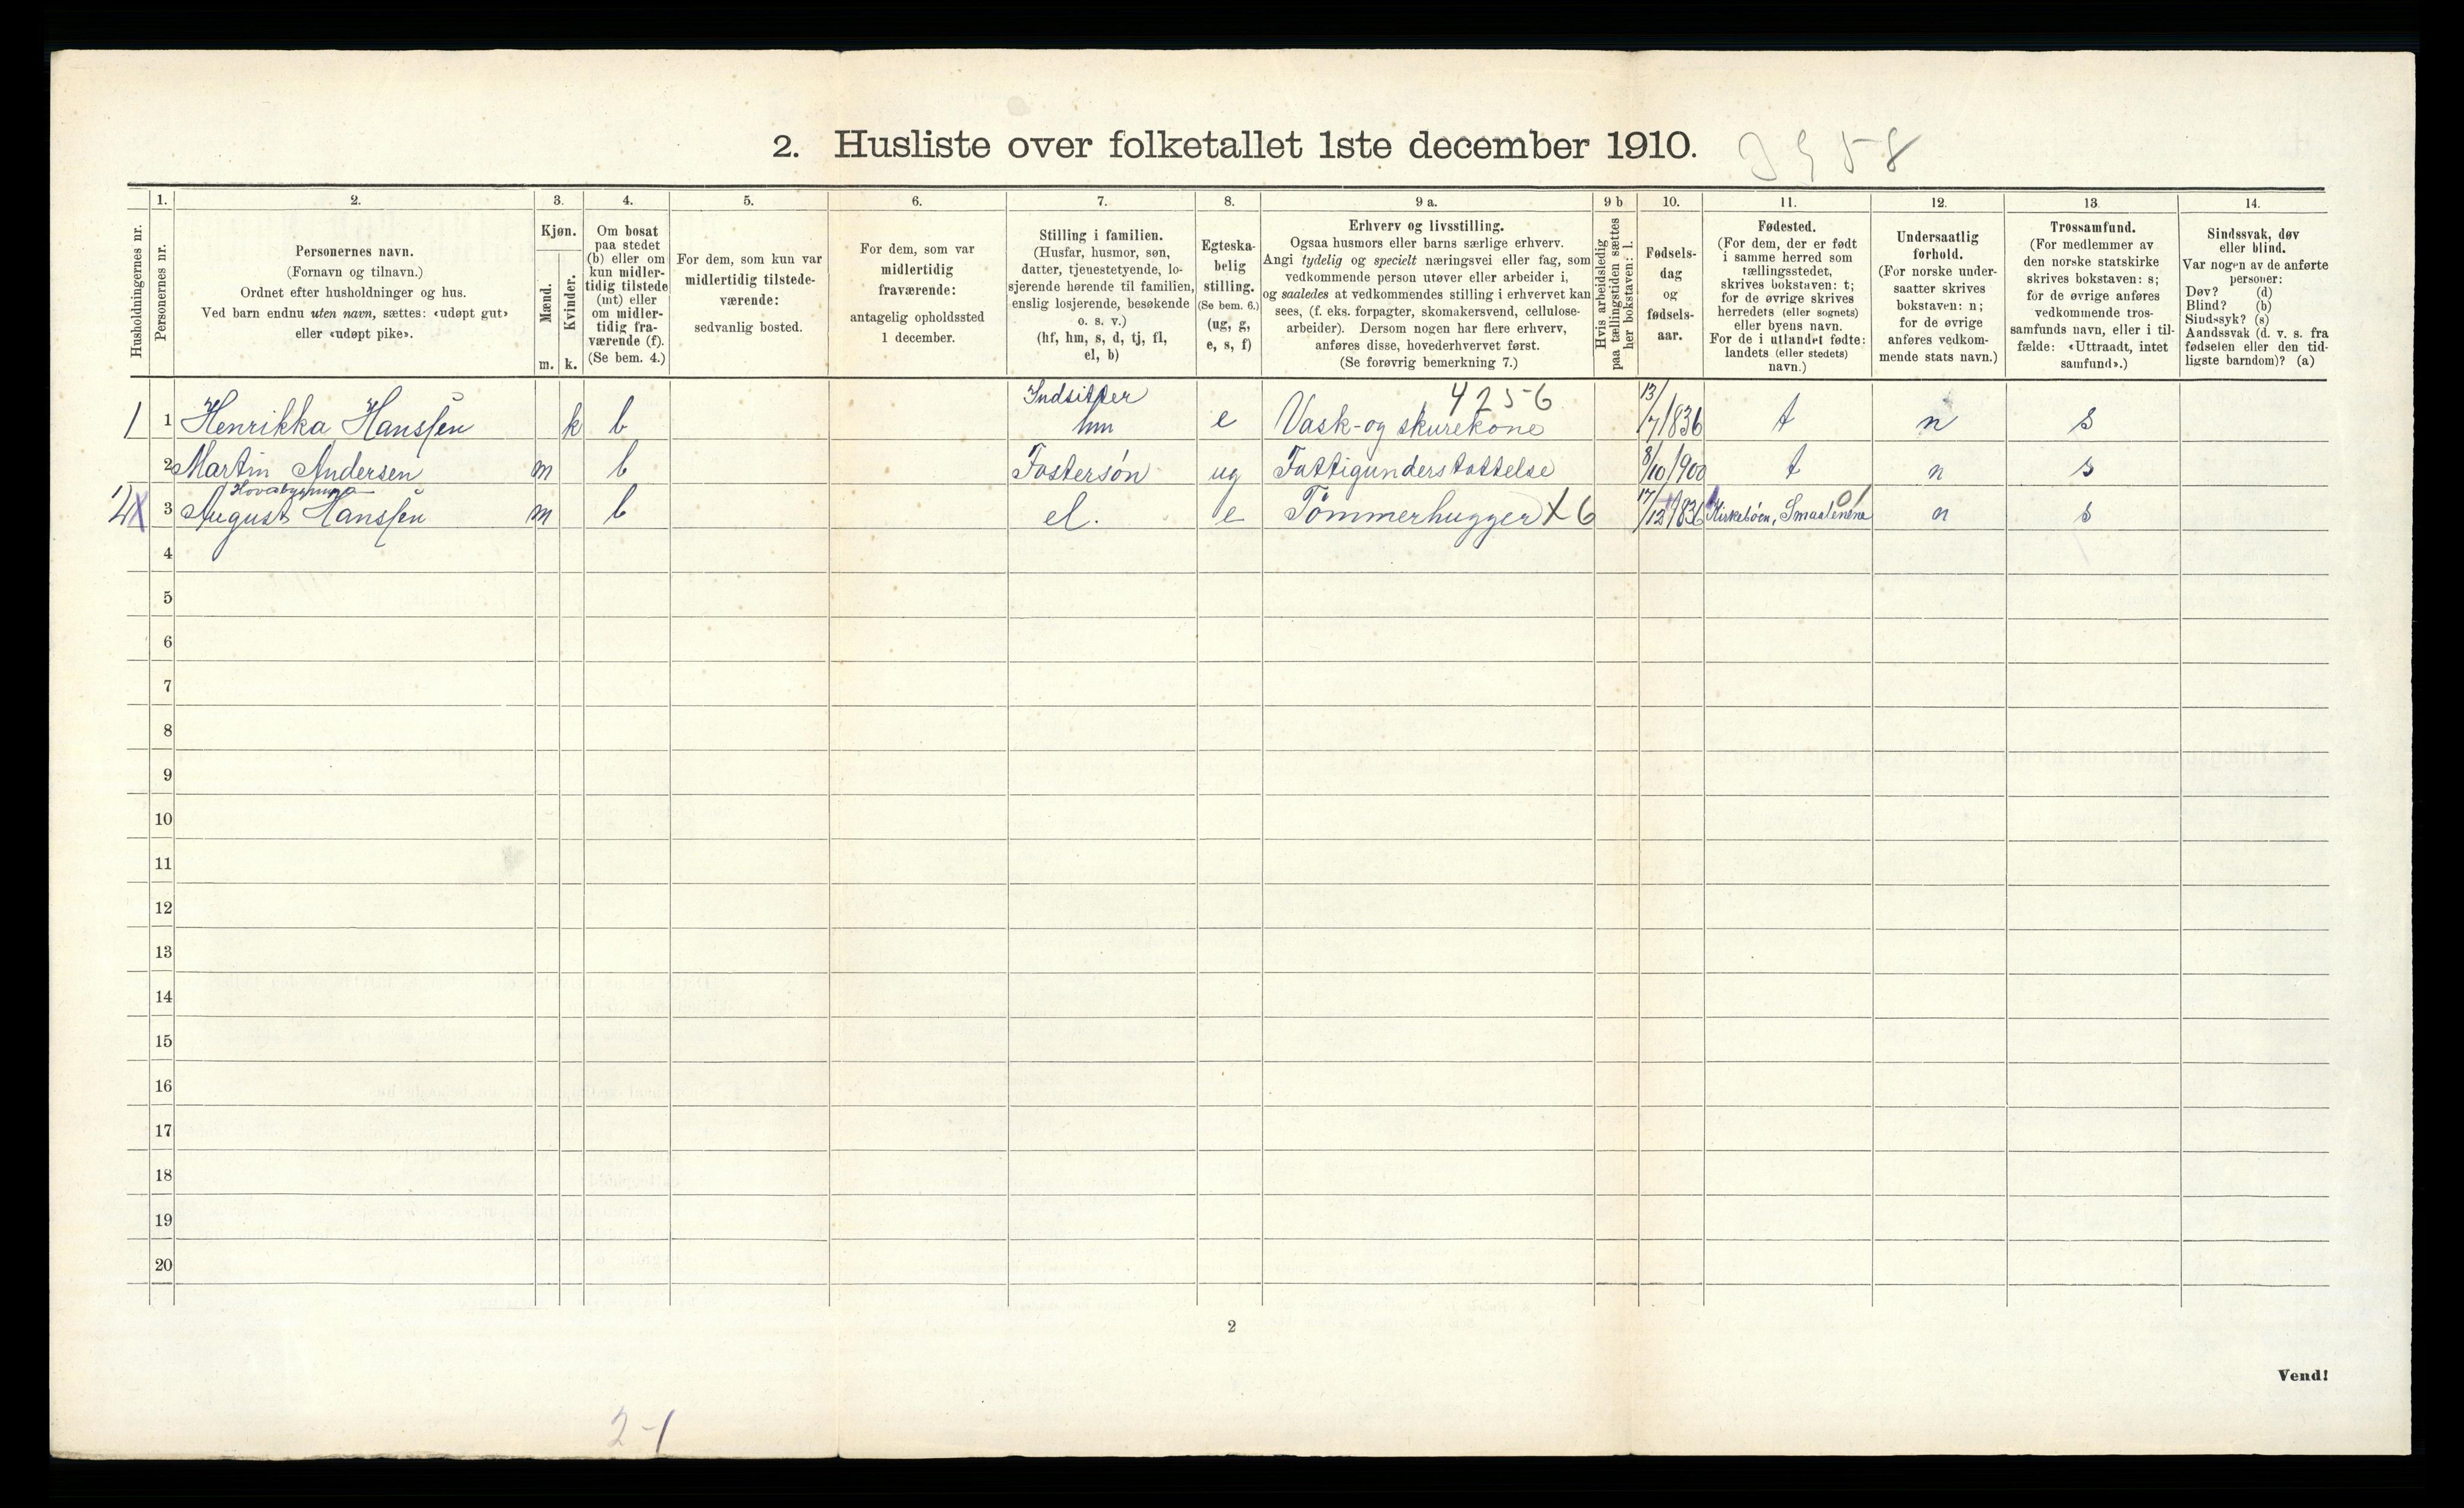 2. Husliste over folketallet 1ste december 1910.
Husholdningernes nr.
1.
Personernes nr.
2.
Personernes navn.
(Fornavn og tilnavn.)
Ordnet efter husholdninger og hus.
Ved barn endnu uten navn, sættes: «udøpt gut»
eller «udøpt pike».
3.
Kjøn.
Mænd.
Kvinder.
m. k.
4.
Om bosat
paa stedet
(b) eller om
kun midler-
tidig tilstede
(mt) eller
om midler-
tidig fra-
værende (f).
(Se bem. 4.)
5.
For dem, som kun var
midlertidig tilstede-
værende:
sedvanlig bosted.
6.
For dem, som var
midlertidig
fraværende:
antagelig opholdssted
1 december.
7.
Stilling i familien.
(Husfar, husmor, søn,
datter, tjenestetyende, lo-
sjerende hørende til familien,
enslig losjerende, besøkende
o. s. v.)
(hf, hm, s, d, tj, fl,
el, b)
8.
Egteska-
belig
stilling.
(Se bem. 6.)
(ug, g,
e, s, f)
9 a.
Erhverv og livsstilling.
Ogsaa husmors eller barns særlige erhverv.
Angi tydelig og specielt næringsvei eller fag, som
vedkommende person utøver eller arbeider i,
og saaledes at vedkommendes stilling i erhvervet kan
sees, (f. eks. forpagter, skomakersvend, cellulose-
arbeider). Dersom nogen har flere erhverv,
anføres disse, hovederhvervet først.
(Se forøvrig bemerkning 7.)
9 b
Hvis arbeidsledig
paa tællingstiden sættes
her bokstaven: l.
10.
Fødsels-
dag
og
fødsels-
aar.
11.
Fødested.
(For dem, der er født
i samme herred som
tællingsstedet,
skrives bokstaven: t;
for de øvrige skrives
herredets (eller sognets)
eller byens navn.
For de i utlandet fødte:
landets (eller stedets)
navn.)
12.
Undersaatlig
forhold.
(For norske under-
saatter skrives
bokstaven: n;
for de øvrige
anføres vedkom-
mende stats navn.)
13.
Trossamfund.
(For medlemmer av
den norske statskirke
skrives bokstaven: s;
for de øvrige anføres
vedkommende tros-
samfunds navn, eller i til-
fælde: «Uttraadt, intet
samfund».)
14.
Sindssvak, døv
eller blind.
Var nogen av de anførte
personer:
Døv? (d)
Blind? (b)
Sindssyk? (s)
Aandssvak (d. v. s. fra
fødselen eller den tid-
ligste barndom)? (a)
Indsitter 4256
1 1 Henrikka Hanssen k b hm e Vask- og skurekone 13/7 1836 t n s
2 Martin Andersen m b Fostersøn ug Fattigunderstøttelse 8/10 1900 t n s
3 August Hanssen m b el. e Tømmerhugger X 6 17/12 1836 Kirkebøen, Smaalenene 01 n s
4
5
6
7
8
9
10
11
12
13
14
15
16
17
18
19
20
2
Vend!
2-1